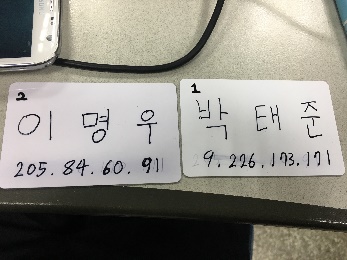 2
이 명 우
205.84.60.91
1
박 태 준
29.226.173.171